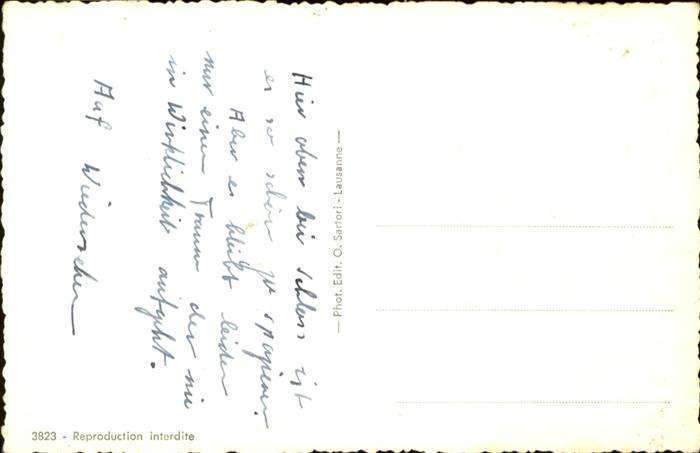 Hier oben bei Schloss ist
es so schön zu spazieren
Aber es bleibt leider
nur einen Traum der nie
in Wirklichkeit aufgeht.
Auf Wiedersehen
— Phot. Edit. O. Sartori - Lausanne —
3823 - Reproduction interdite